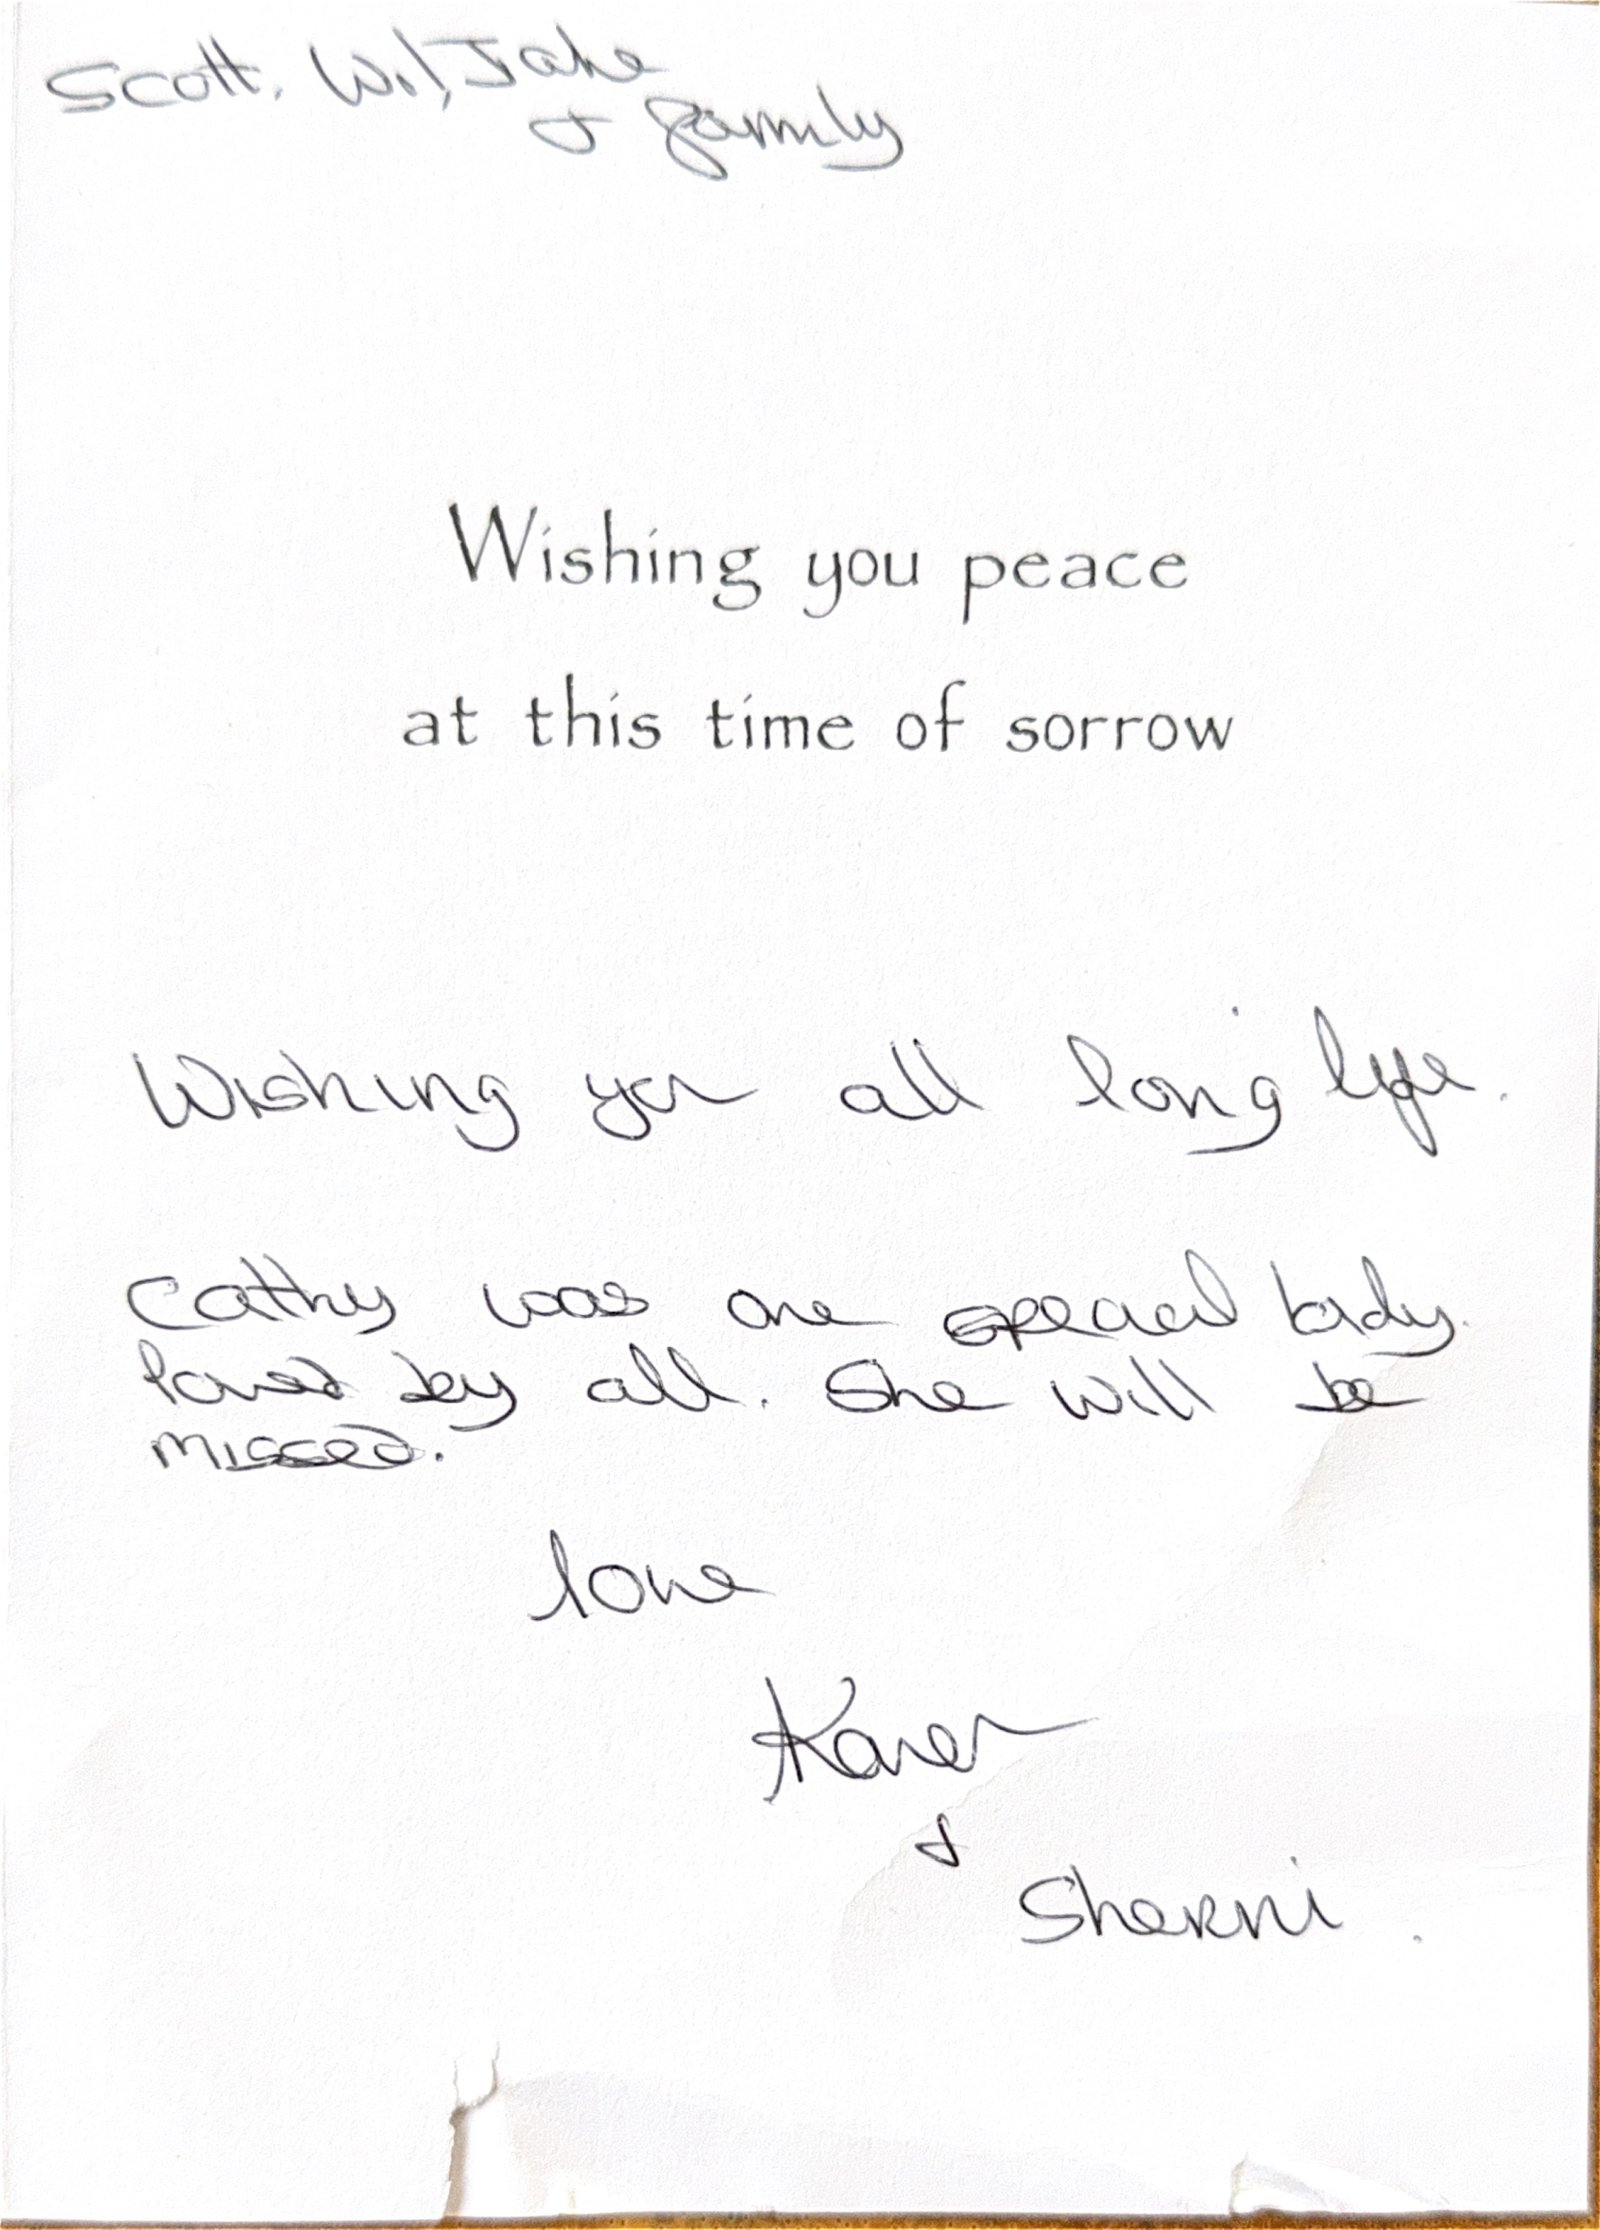 Scott, Wil, Jake
& family
Wishing you peace
at this time of sorrow
Wishing you all long life.
Cathy was one special lady.
loved by all. She will be
missed.
love
Karen
&
Sherri.